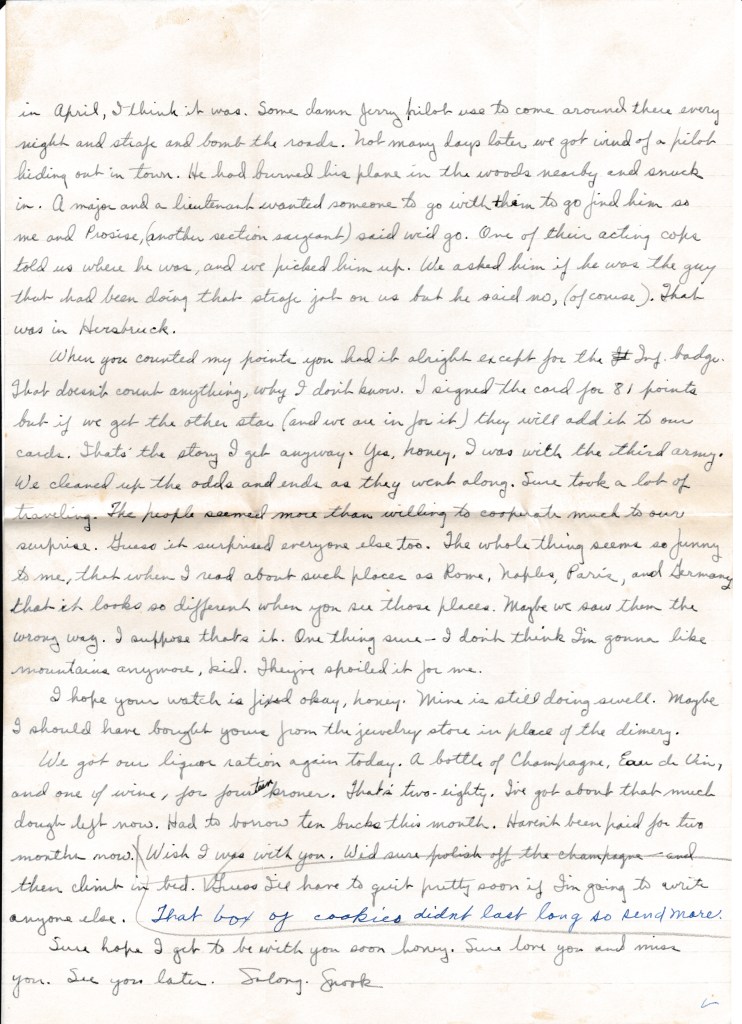 in April, I think it was. Some damn Jerry pilot use to come around there every
night and strafe and bomb the roads. Not many days later we got wind of a pilot
hiding out in town. He had burned his plane in the woods nearby and snuck
in. A major and a lieutenant wanted someone to go with them to go find him so
me and Prosise, (another section sargeant) said we'd go. One of their acting cops
told us where he was, and we picked him up. We asked him if he was the guy
that had been doing that strafe job on us but he said no, (of couise). That
was in Hersbruck.
When you counted my points you had it alright except for the Inf. badge.
That doesn't count anything, why I don't know. I signed the card for 81 points
but if we get the other star (and we are in for it) they will add it to our
cards. Thats' the story I get anyway. Yes, honey, I was with the third army.
We cleaned up the odds and ends as they went along. Sure took a lot of
traveling. The people seemed more than willing to cooperate much to our
surprise. Guess it surprised everyone else too. The whole thing seems so funny
to me, that when I read about such places as Rome, Naples, Paris, and Germany
that it looks so different when you see those places. Maybe we saw them the
wrong way. I suppose thats it. One thing sure - I don't think I'm gonna like
mountains anymore, kid. They've spoiled it for me.
I hope your watch is fixed okay, honey. Mine is still doing swell. Maybe
I should have bought yours from the jewelry store in place of the dimery.
We got our liquor ration again today. A bottle of Champagne, Eau de Vin,
and one of wine, for fourteen kroner. That's two-eighty. I've got about that much
dough left now. Had to borrow ten bucks this month. Haven't been paid for two
months now. Wish I was with you. We'd sure polish off the champagne and
then climb in bed. Guess I'll have to quit pretty soon if I'm going to write
anyone else. That box of cookies didnt last long so send more.
Sure hope I get to be with you soon honey. Sure love you and miss
you. See you later. Solong. Snook